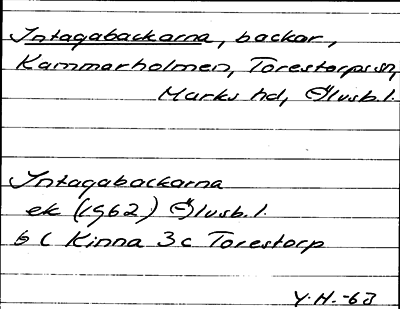 Intagabackarna, backar,
Kammarholmen, Torestorps sn,
Marks hd, Älvsb. l.
Intagabackarna
ek (1962) Älvsb. l.
6 C Kinna 3c Torestorp
Y. H. -63